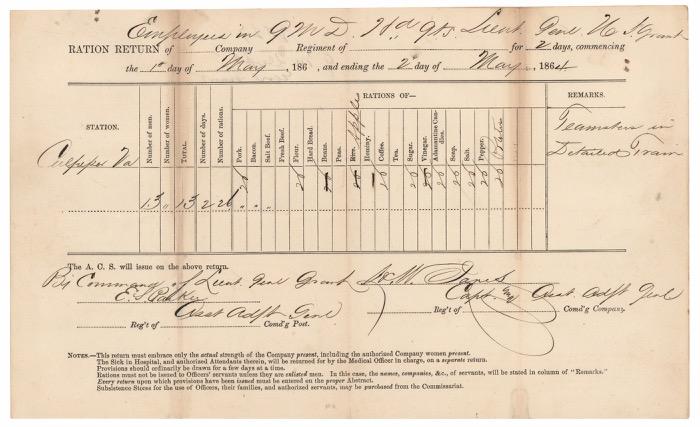 Employees in Q M D. Hd Qts. Lieut. Genl U S Grant
RATION RETURN of Company Regiment of for 2 days, commencing
the 1st day of May 186 , and ending the 2 day of May 1864
STATION.
Number of men.
Number of women.
TOTAL.
Number of days.
Number of rations.
RATIONS OF—
Pork.
Bacon.
Salt Beef.
Fresh Beef.
Flour.
Hard Bread.
Beans.
Peas.
Rice.
Apples
Hominy.
Coffee.
Tea.
Sugar.
Vinegar.
Adamantine Candles.
Soap.
Salt.
Pepper.
REMARKS.
Culpeper Va
Teamsters in
Detailed Train
13 „ 13 2 26 „ „ „
The A. C. S. will issue on the above return.
By Command of Lieut. Genl Grant
E. S. Parker
Asst Adjt Genl
Wm M.
Capt. Asst Adjt Genl
Reg't of Comd'g Post.
Reg't of Comd'g Company.
NOTES.—This return must embrace only the actual strength of the Company present, including the authorized Company women present.
The Sick in Hospital, and authorized Attendants therein, will be returned for by the Medical Officer in charge, on a separate return.
Provisions should ordinarily be drawn for a few days at a time.
Rations must not be issued to Officers' servants unless they are enlisted men. In this case, the names, companies, &c., of servants, will be stated in column of "Remarks."
Every return upon which provisions have been issued must be entered on the proper Abstract.
Subsistence Stores for the use of Officers, their families, and authorized servants, may be purchased from the Commissariat.